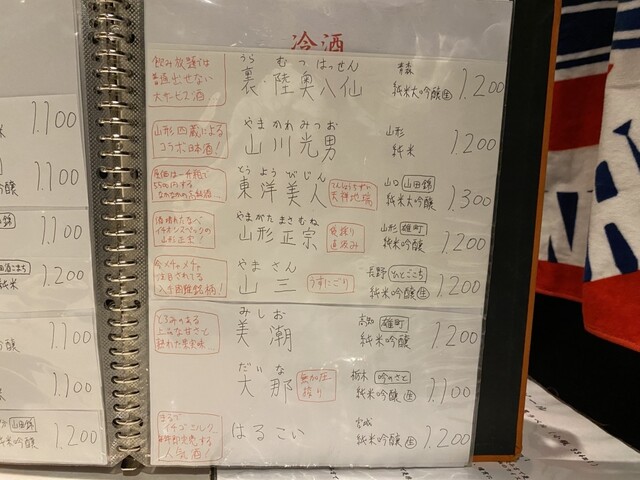 冷酒
飲み放題では
大サービス酒
うら むつ はっせん
裏・陸奥八仙
青森
純米大吟醸 生
1.200
山形四蔵による
コラボ日本酒!
やまかわみつお
山川光男
山形
純米
1.200
とうようびじん
東洋美人
てんはらちずい
天祥地瑞
山口 山田錦
純米大吟醸
1.300
山形正宗!
やまがた まさむね
山形正宗
直汲み
山形 雄町
純米吟醸
1.200
今メチャメチャ
注目されてる
入手困難銘柄!
やま さん
山三
うすにごり
長野 ひとごこち
純米吟醸 生
1.200
とろみのある
上品な甘さと
熟れた果実味
みしお
美潮
高知 雄町
純米吟醸
1.200
だいな
大那
無加圧
搾り
栃木 吟のさと
純米吟醸 生
1.100
まるで
イチゴミルク
人気酒!
はるこい
宮城
純米吟醸 生
1.200
1.100
1.100
1.100
1.200
1.100
1.100
山田錦
1.200